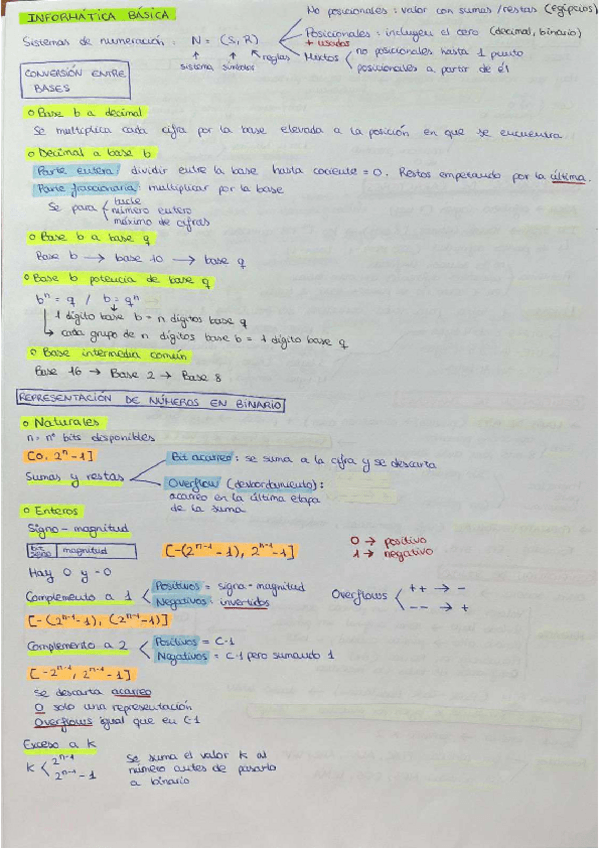 INFORMÁTICA BÁSICA
No posicionales: valor con sumas/restas (egipcios)
Sistemas de numeración: N = (S, R)
Posicionales: incluyen el cero (decimal, binario)
+ usados
Mixtos
no posicionales hasta 1 punto
posicionales a partir de él
sistema símbolos reglas
CONVERSIÓN ENTRE
BASES
Base b a decimal
Se multiplica cada cifra por la base elevada a la posición en que se encuentra.
Decimal a base b
Parte entera/ dividir entre la base hasta cociente = 0. Restos empezando por la última.
Parte fraccionaria/ multiplicar por la base
Se para
bucle
número entero
máximo de cifras
Base b a base q
Base b → base 10 → base q
Base b potencia de base q
bⁿ = q / b = qⁿ
1 dígito base b = n dígitos base q
cada grupo de n dígitos base b = 1 dígito base q
Base intermedia común
Base 16 → Base 2 → Base 8
REPRESENTACIÓN DE NÚMEROS EN BINARIO
Naturales
n = nº bits disponibles
[0, 2ⁿ-1]
Sumas y restas
Bit acarreo: se suma a la cifra y se descarta
Overflow (desbordamiento):
acarreo en la última etapa
de la suma
Enteros
Signo-magnitud
bit signo | magnitud
[-(2ⁿ⁻¹-1), 2ⁿ⁻¹-1]
0 → positivo
1 → negativo
Hay 0 y -0
Complemento a 1
Positivos = signo-magnitud
Negativos: invertidos
Overflows
++ → -
-- → +
[-(2ⁿ⁻¹-1), (2ⁿ⁻¹-1)]
Complemento a 2
Positivos = C-1
Negativos = C-1 pero sumando 1
[-2ⁿ⁻¹, 2ⁿ⁻¹-1]
Se descarta acarreo
0 solo una representación
Overflows igual que en C-1
Exceso a K
K
2ⁿ⁻¹
2ⁿ⁻¹-1
Se suma el valor K al
número antes de pasarlo
a binario